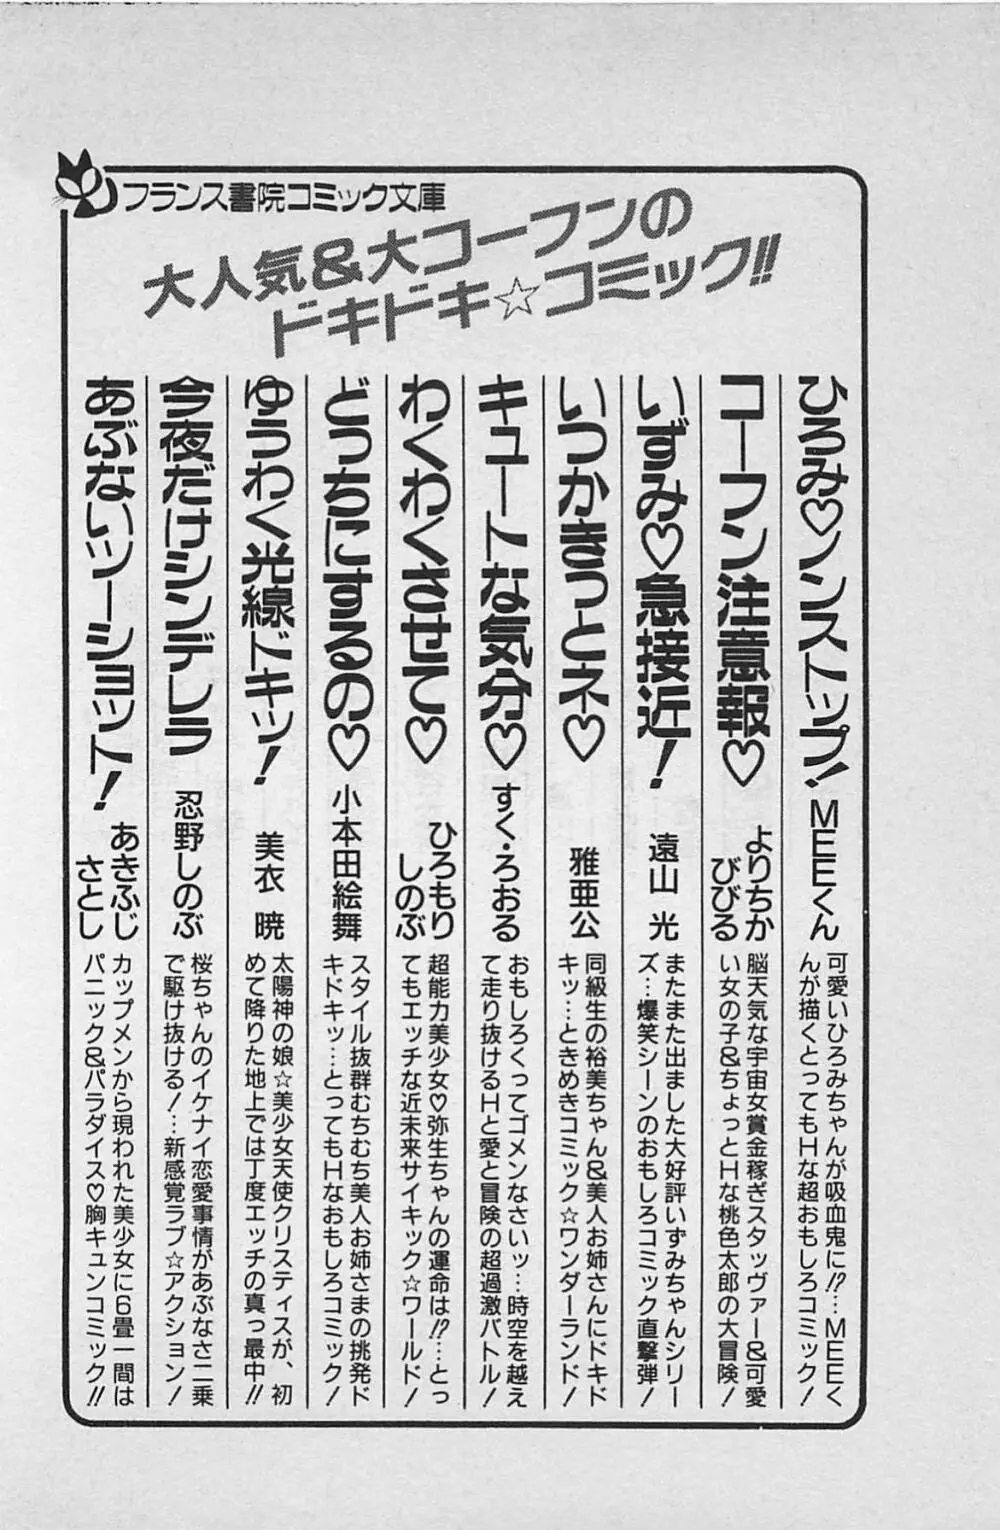 フランス書院コミック文庫
大人気&大コーフンの
ドキドキ☆コミック!!
ひろみ♡ノンストップ!
MEEくん
可愛いひろみちゃんが吸血鬼に!?…MEEく
んが描くとってもHな超おもしろコミック!
コーフン注意報♡
よりちか
びびる
脳天気な宇宙女賞金稼ぎスタッヴァー&可愛
い女の子&ちょっとHな桃色太郎の大冒険!
いずみ♡急接近!
遠山 光
またまた出ました大好評いずみちゃんシリー
ズ…爆笑シーンのおもしろコミック直撃弾!
いつかきっとネ♡
雅亜公
同級生の裕美ちゃん&美人お姉さんにドキド
キッ…ときめきコミック☆ワンダーランド!
キュートな気分♡
すく・ろおる
おもしろくってゴメンなさいッ…時空を越え
て走り抜けるHと愛と冒険の超過激バトル!
わくわくさせて♡
ひろもり
しのぶ
超能力美少女♡弥生ちゃんの運命は!?…とっ
てもエッチな近未来サイキック☆ワールド!
どっちにするの♡
小本田絵舞
スタイル抜群むちむち美人お姉さまの挑発ド
キドキッ…とってもHなおもしろコミック!
ゆうわく光線ドキッ!
美衣 暁
太陽神の娘☆美少女天使クリスティスが、初
めて降りた地上では丁度エッチの真っ最中!!
今夜だけシンデレラ
忍野しのぶ
桜ちゃんのイケナイ恋愛事情があぶなさ二乗
で駆け抜ける!…新感覚ラブ☆アクション!
あぶないツーショット!
あきふじ
さとし
カップメンから現われた美少女に6畳一間は
パニック&パラダイス♡胸キュンコミック!!